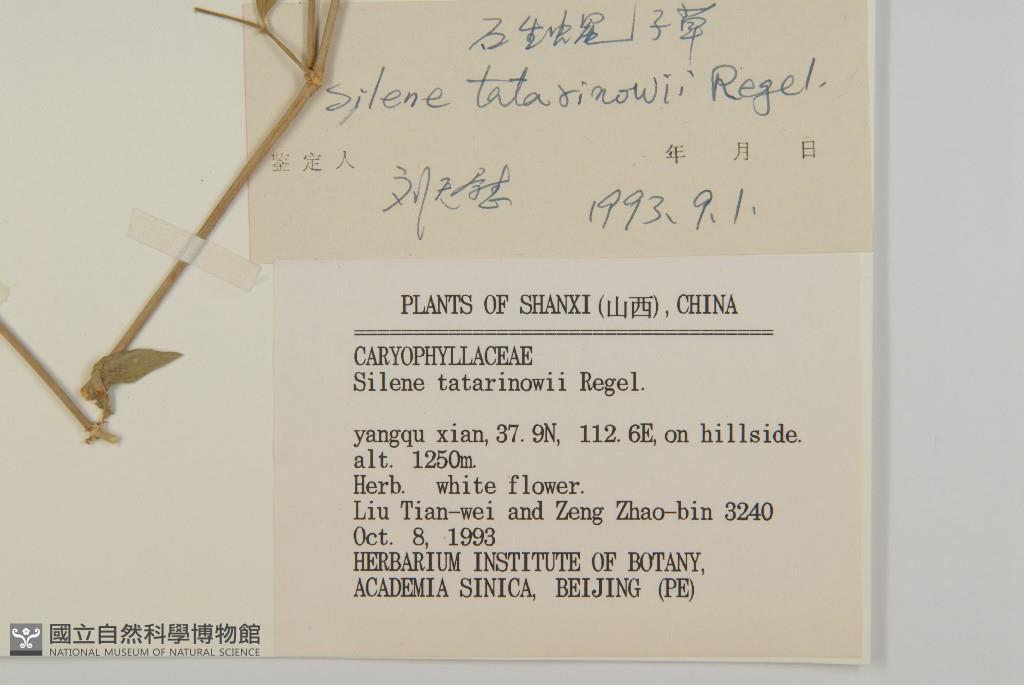 石生蝇子草
Silene tatarinowii Regel.
鉴定人 年 月 日
刘天慰 1993. 9. 1.
PLANTS OF SHANXI (山西), CHINA
CARYOPHYLLACEAE
Silene tatarinowii Regel.
yangqu xian, 37.9N, 112.6E, on hillside.
alt. 1250m.
Herb. white flower.
Liu Tian-wei and Zeng Zhao-bin 3240
Oct. 8, 1993
HERBARIUM INSTITUTE OF BOTANY,
ACADEMIA SINICA, BEIJING (PE)
國立自然科學博物館
NATIONAL MUSEUM OF NATURAL SCIENCE